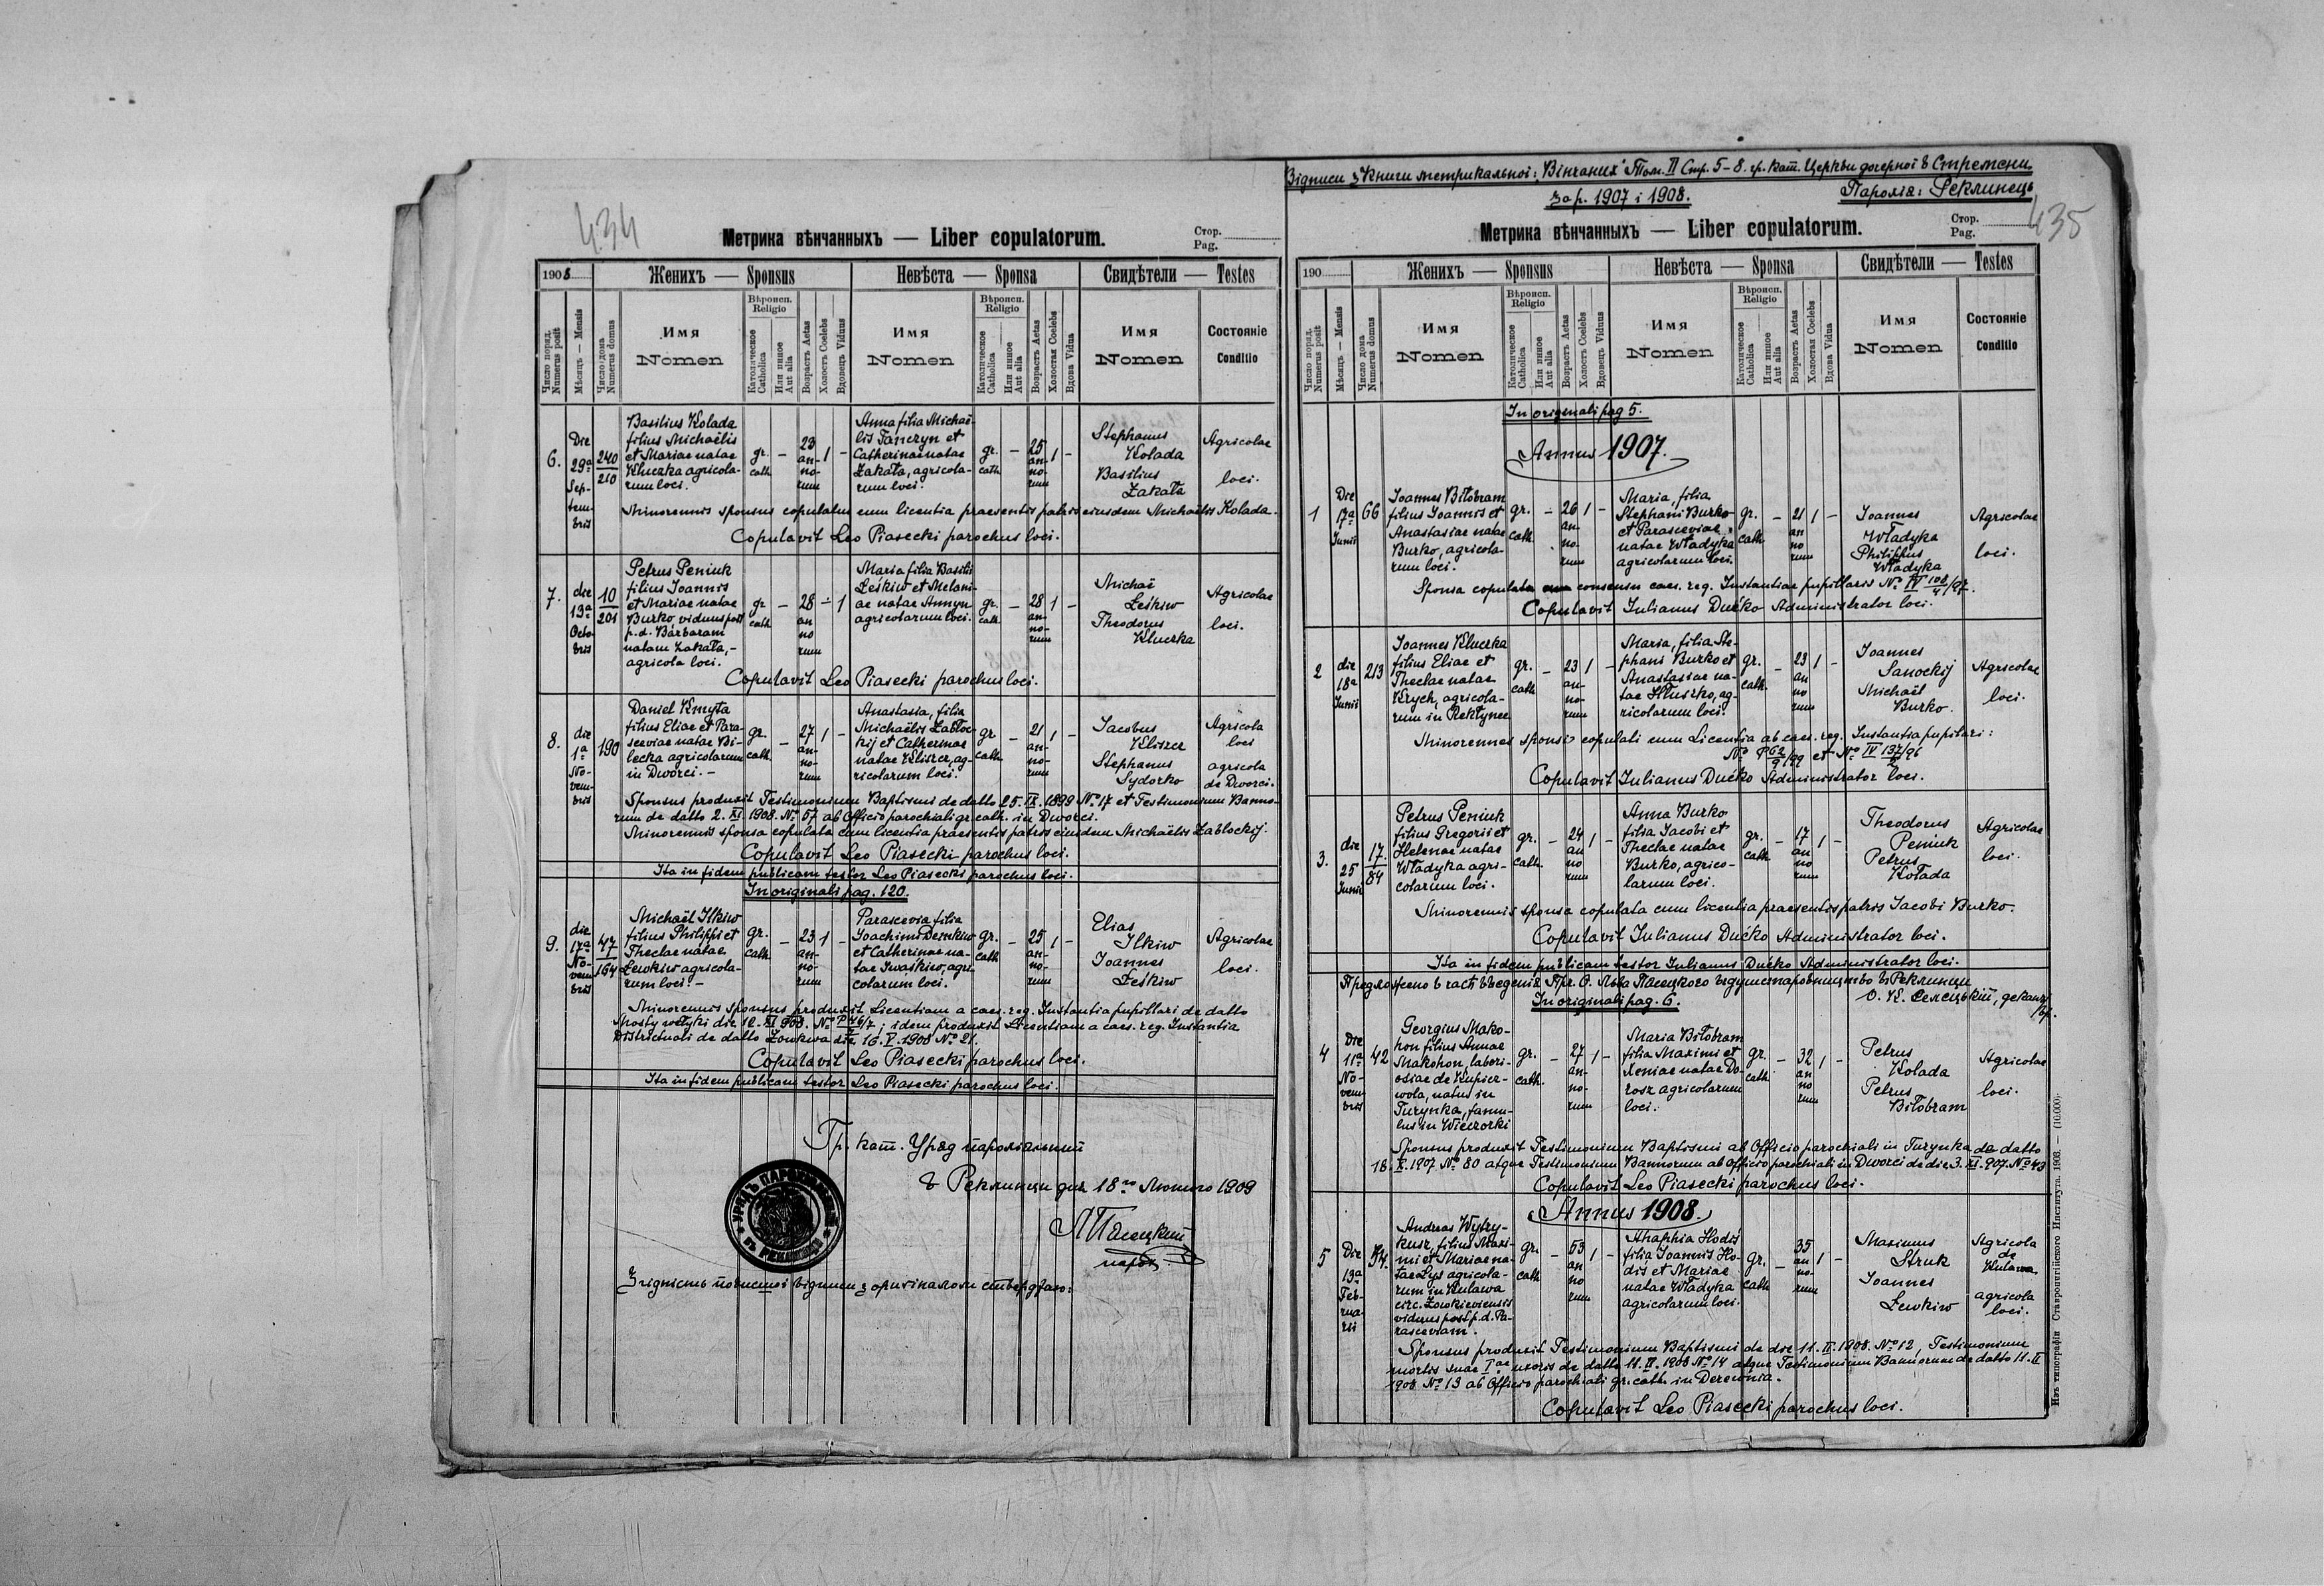 434
Метрика вѣнчанныхъ — Liber copulatorum.
Стор.
Pag.
1908
Женихъ — Sponsus
Невѣста — Sponsa
Свидѣтели — Testes
Число поряд. Numerus posit
Мѣсяцъ — Mensis
Число дома Numerus domus
Имя
Nomen
Вѣроисп.
Religio
Католическое Catholica
Или инное Aut alia
Возрастъ Aetas
Холостъ Coelebs
Вдовецъ Viduus
Имя
Nomen
Вѣроисп.
Religio
Католическое Catholica
Или инное Aut alia
Возрастъ Aetas
Холостая Coelebs
Вдова Vidua
Имя
Nomen
Состояніе
Conditio
6.
Die
29ª
Sep-
tem-
bris
240
210
Basilius Kolada
filius Michaëlis
et Mariae natae
Kluczka agricola-
rum loci.
gr.
cath.
—
23
an-
no-
rum
1
—
Anna filia Michaë-
lis Tanczyn et
Catherinae natae
Zakała, agricola-
rum loci.
gr.
cath
—
25
an-
no-
rum
1
—
Stephanus
Kolada
Basilius
Zakała
Agricolae
loci.
Minorennis sponsus copulatus cum licentia praesentis patris eiusdem Michaëlis Kolada.
Copulavit Leo Piasecki parochus loci.
7.
die
13ª
Octo-
bris
10
201
Petrus Peniuk
filius Ioannis
et Mariae natae
Burko, viduus post
p. d. Barbaram
natam Zakała,-
agricola loci.
gr
cath
—
28
an
no
rum
—
1
Maria filia Basilii
Leśkiw et Melani-
ae natae Annyn
agricolarum loci.
gr.
cath.
—
28
an-
no-
rum
1
—
Michaë
Leśkiw
Theodorus
Kluczka
Agricolae
loci.
Copulavit Leo Piasecki parochus loci.
8.
die
1ª
No-
vem-
bris
190
Daniel Kmyta
filius Eliae et Para-
sceviae natae Bi-
lecka agricolarum
in Dworci. -
gr.
cath.
—
27
an-
no-
rum
1
—
Anastasia, filia
Michaëlis Zabłoc-
kij et Catherinae
natae Kliszcz, ag-
ricolarum loci.
gr
cath.
—
21
an-
no-
rum
1
—
Iacobus
Kliszcz
Stephanus
Sydorko
Agricola
loci
agricola
de Dworci.
Sponsus produxit Testimonium Baptismi de datto 25. IX. 1899 Nº 17 et Testimonium Banno-
rum de datto 2. XI. 1908. Nº 57 ab Officio parochiali gr. cath. in Dworci.
Minorennis sponsa copulata cum licentia praesentis patris eiusdem Michaëlis Zabłockij.
Copulavit Leo Piasecki parochus loci.
Ita in fidem publicam testor Leo Piasecki parochus loci.
In originali pag. 120.
9.
die
17ª
No-
vem
bris
47
164
Michaël Ilkiw
filius Philippi et
Theclae natae
Lewkiw agricola-
rum loci. -
gr.
cath.
—
23
an-
no-
rum
1
—
Parascevia filia
Ioachimi Demkiw
et Catherinae na-
tae Iwaśkiw, agri-
colarum loci.
gr.
cath
—
25
an-
no-
rum
1
—
Elias
Ilkiw
Ioannes
Leśkiw
Agricolae
loci.
Minorennis sponsus produxit Licentiam a caes. reg. Instantia pupillari de datto
Mosty wełyki die 12. XI 908. Nº P 46/7; idem produxit Licentiam a caes. reg. Instantia
Districtuali de datto Żowkwa die 16. V. 1908 Nº 21.
Copulavit Leo Piasecki parochus loci.
Ita in fidem publicam testor Leo Piasecki parochus loci.
Гр. кат. Уряд парохіяльний
в Реклинци дня 18го Лютого 1909
Л Пясецкий
парох
УРЯДЪ ПАРОХІЯЛЬНЫЙ
Згідність повисшої відписи з оригіналом стверджаю:
Відписи з Книги метрикальної: „Вінчаних" Том. II Стр. 5-8. гр. кат. Церкви дочерної в Стремени.
за р. 1907 і 1908.
Парохія: Реклинець
435
Метрика вѣнчанныхъ — Liber copulatorum.
Стор.
Pag.
190
Женихъ — Sponsus
Невѣста — Sponsa
Свидѣтели — Testes
Число поряд. Numerus posit
Мѣсяцъ — Mensis
Число дома Numerus domus
Имя
Nomen
Вѣроисп.
Religio
Католическое Catholica
Или инное Aut alia
Возрастъ Aetas
Холостъ Coelebs
Вдовецъ Viduus
Имя
Nomen
Вѣроисп.
Religio
Католическое Catholica
Или инное Aut alia
Возрастъ Aetas
Холостая Coelebs
Вдова Vidua
Имя
Nomen
Состояніе
Conditio
In originali pag 5.
Annus 1907.
1
Die
17ª
Iunii
66
Ioannes Biłobram
filius Ioannis et
Anastasiae natae
Burko, agricola-
rum loci.
gr.
cath.
—
26
an-
no-
rum
1
—
Maria, filia
Stephani Burko
et Parasceviae
natae Władyka
agricolarum loci.
gr.
cath.
—
21
an
no
rum
1
—
Ioannes
Władyka
Philippus
Władyka
Agricolae
loci.
Sponsa copulata consensu caes. reg. Instantiae pupillaris Nº IV 108/4/97.
Copulavit Iulianus Dućko Administrator loci.
2
die
18ª
Iunii
213
Ioannes Kluczka
filius Eliae et
Theclae natae
Krych, agricola-
rum in Rekłynec
gr.
cath
—
23
an-
no-
rum
1
—
Maria, filia Ste-
phani Burko et
Anastasiae na-
tae Hłuszko, ag-
ricolarum loci.
gr.
cath.
—
23
an
no
rum
1
—
Ioannes
Sanockij
Michaël
Burko.
Agricolae
loci.
Minorennes sponsi copulati cum Licentia ab caes. reg. Instantia pupilari:
Nº P 62/9/99 et Nº IV 137/2/96
Copulavit Iulianus Dućko Administrator loci.
3.
die
25
Iunii
17.
84
Petrus Peniuk
filius Gregorii et
Helenae natae
Władyka agri-
colarum loci.
gr.
cath.
—
24
an
no
rum
1
—
Anna Burko
filia Iacobi et
Theclae natae
Burko, agrico-
larum loci.
gr.
cath.
—
17
an
no
rum
1
—
Theodorus
Peniuk
Petrus
Kolada
Agricolae
loci.
Minorennis sponsa copulata cum licentia praesentis patris Iacobi Burko.
Copulavit Iulianus Dućko Administrator loci.
Ita in fidem publicam testor Iulianus Dućko Administrator loci.
In originali pag. 6.
4
Die
11ª
No-
vem
bris
42
Georgius Mako-
hon filius Annae
Makohon, labori-
osiae de Kupicz-
wola, natus in
Turynka, famu-
lus in Wieczorki
gr.
cath.
—
27
an-
no-
rum
1
—
Maria Biłobram
filia Maximi et
Xeniae natae Do-
rosz agricolarum
loci.
gr.
cath.
—
32
an
no
rum
1
—
Petrus
Kolada
Petrus
Biłobram
Agricolae
loci.
Sponsus produxit Testimonium Baptismi ab Officio parochiali in Turynka de datto
18. X. 1907 Nº 80 atque Testimonium Bannorum ab officio parochiali in Dworci de die 3. XI. 907. Nº 43
Copulavit Leo Piasecki parochus loci.
Annus 1908.
5
Die
19ª
Feb-
rua-
rii
Andreas Wytry-
kusz, filius Maxi-
mi et Mariae na-
tae Lys agricola-
rum in Kulawa
circ. Żowkiewiensis
viduus post p. d. Pa-
rasceviam.
gr.
cath
—
53
an
no
rum
1
—
Ahaphia Hodiś
filia Ioannis Ho-
dis et Mariae
natae Władyka
agricolarum loci.
gr.
cath
—
35
an
no-
rum
1
—
Maximus
Struk
Ioannes
Lewkiw
Agricola
de
Kulawa
agricola
loci.
Sponsus produxit Testimonium Baptismi de die 11. II. 1908. Nº 12, Testimonium
mortis suae Iae uxoris de datto 11. II. 1908 Nº 14 atque Testimonium Bannorum de datto 11. II
1908 Nº 13 ab Officio parochiali gr. cath. in Derewnia.
Copulavit Leo Piasecki parochus loci.
Изъ типографіи Ставропигійского Института. 1908. — (10.000).